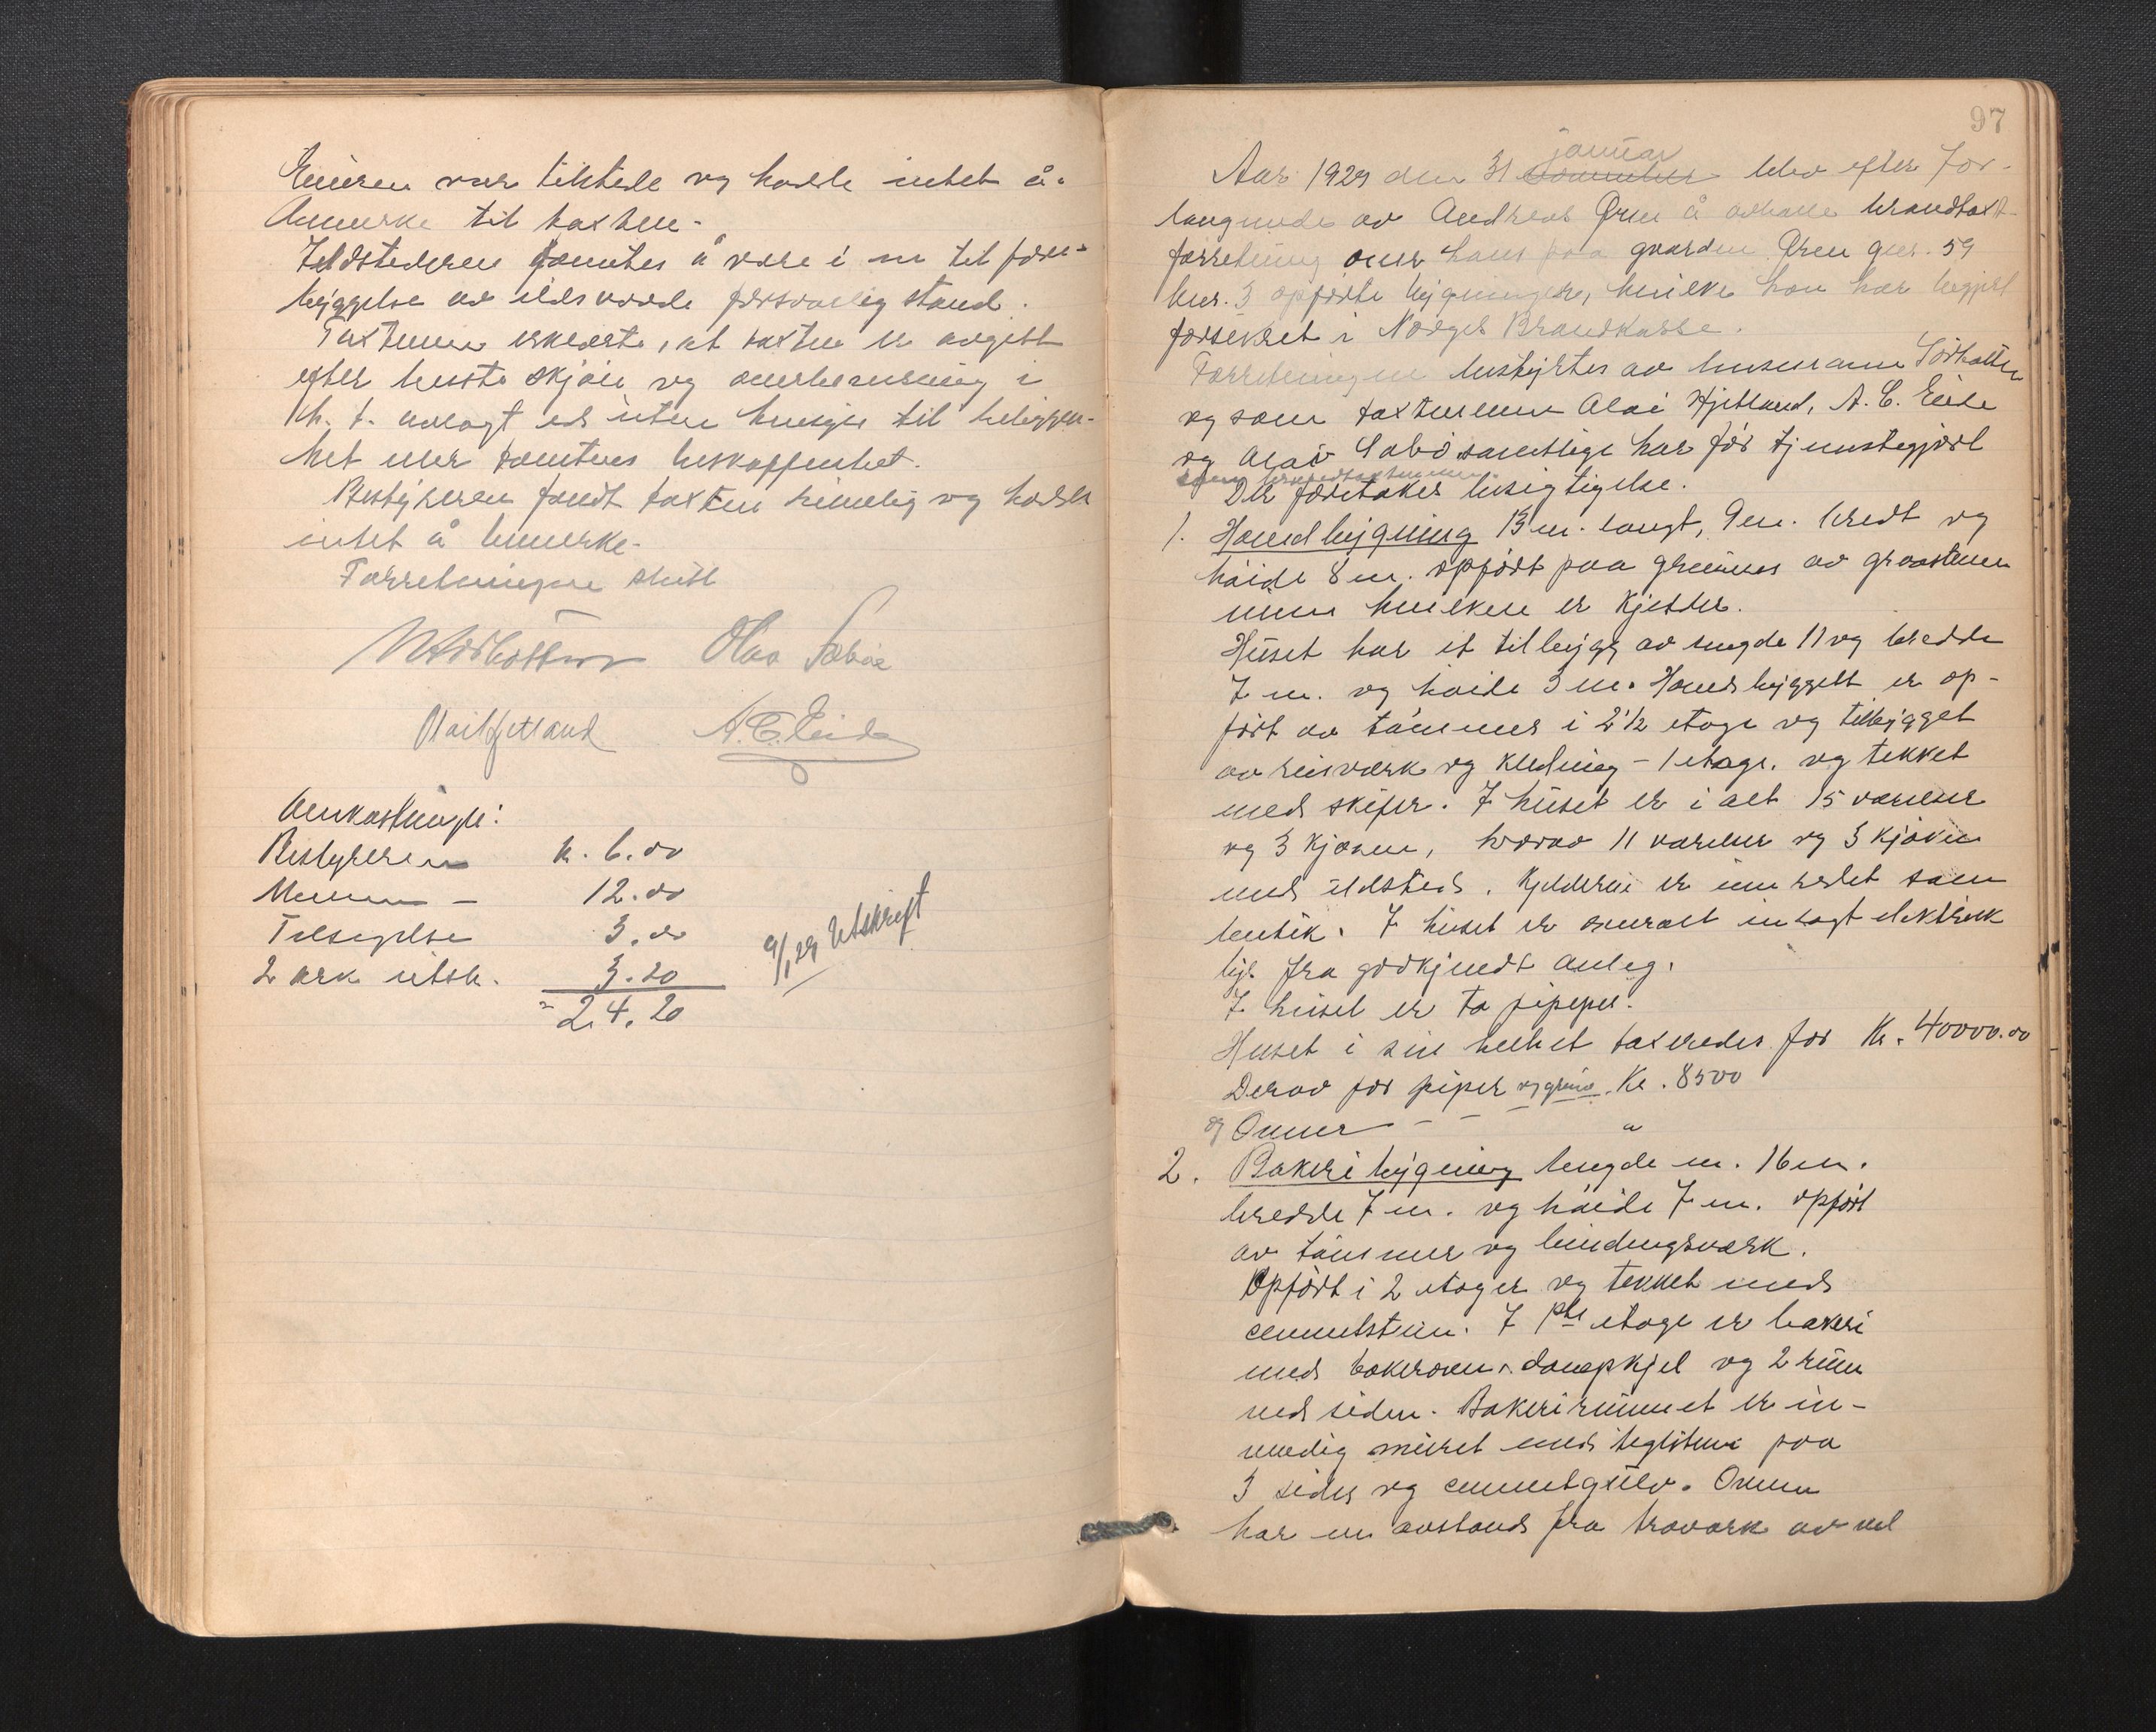 Eieren var tilstede og hadde intet å
bemerke til taxten.
Ildstederne fantes å være i en til fore-
byggelse av ildsvaade forsvarlig stand.
Taxtmennene erklærte, at taxten er avgitt
efter beste skjøn og overbevisning i
h. t. avlagt ed uten hensyn til beliggen-
het eller tomtens beskaffenhet.
Bestyreren fandt taxten rimelig og hadde
intet å bemerke.
Forretningen slutt
Olav Sæbøe
Olai Hjetland A. C. Eide
Omkostninger:
Bestyreren kr. 6.00
Mennene – 12.00
Tilsigelse 3.00
2 ark utsk. 3.20
= 24.20
9/1 29 Utskrift
97
januar
Aar 1929 den 31 blev efter for-
langende av Andreas Øren å avholde brandtaxt-
forretning over hans paa gaarden Øren gnr. 59
bnr. 3 opførte bygninger, hvilke han har begjært
forsikret i Norges Brandkasse.
Forretningen bestyrtes av lensmann Sörbotten
og som taxtmenn Olai Hjetland, A. C. Eide
og Olav Sæbö samtlige har för tjenestegjort
som brandtaxtmenn.
Der foretokes besigtigelse.
1. Hovedbygning 13 m. langt, 9 m. bredt og
höide 8 m. opfört paa grunmur av graasten
under hvilken er kjelder.
Huset har et tilbygg av lengde 11 og bredde
7 m. og höide 3 m. Hovedbygget er op-
fört av tömmer i 2 1/2 etage og tilbygget
av reisværk og kledning – 1 etage. og tekket
med skifer. I huset er i alt 15 værelser
og 3 kjökken, hvorav 11 værelser og 3 kjöken
med ildsted. Kjelderen er innredet som
butik. I huset er overalt inlagt elektrisk
lys fra godkjendt anleg.
I huset er to piper.
Huset i sin helhet taxeredes for Kr. 40000.00
Derav for piper og grunm. Kr. 8500
og Ovner – – – "
2. Bakeribygning lengde m. 16 m.
bredde 7 m. og höide 7 m. opfört
av tömmer og bindingsværk.
Opfört i 2 etager og tekket med
cementsten. I 1ste etage er bakeri
med bakerovn, dampkjel og 2 rum
ved siden. Bakerirummet er in-
vendig muret med teglsten paa
3 sider og cementgulv. Ovnen
har en avstand fra træværk av vel